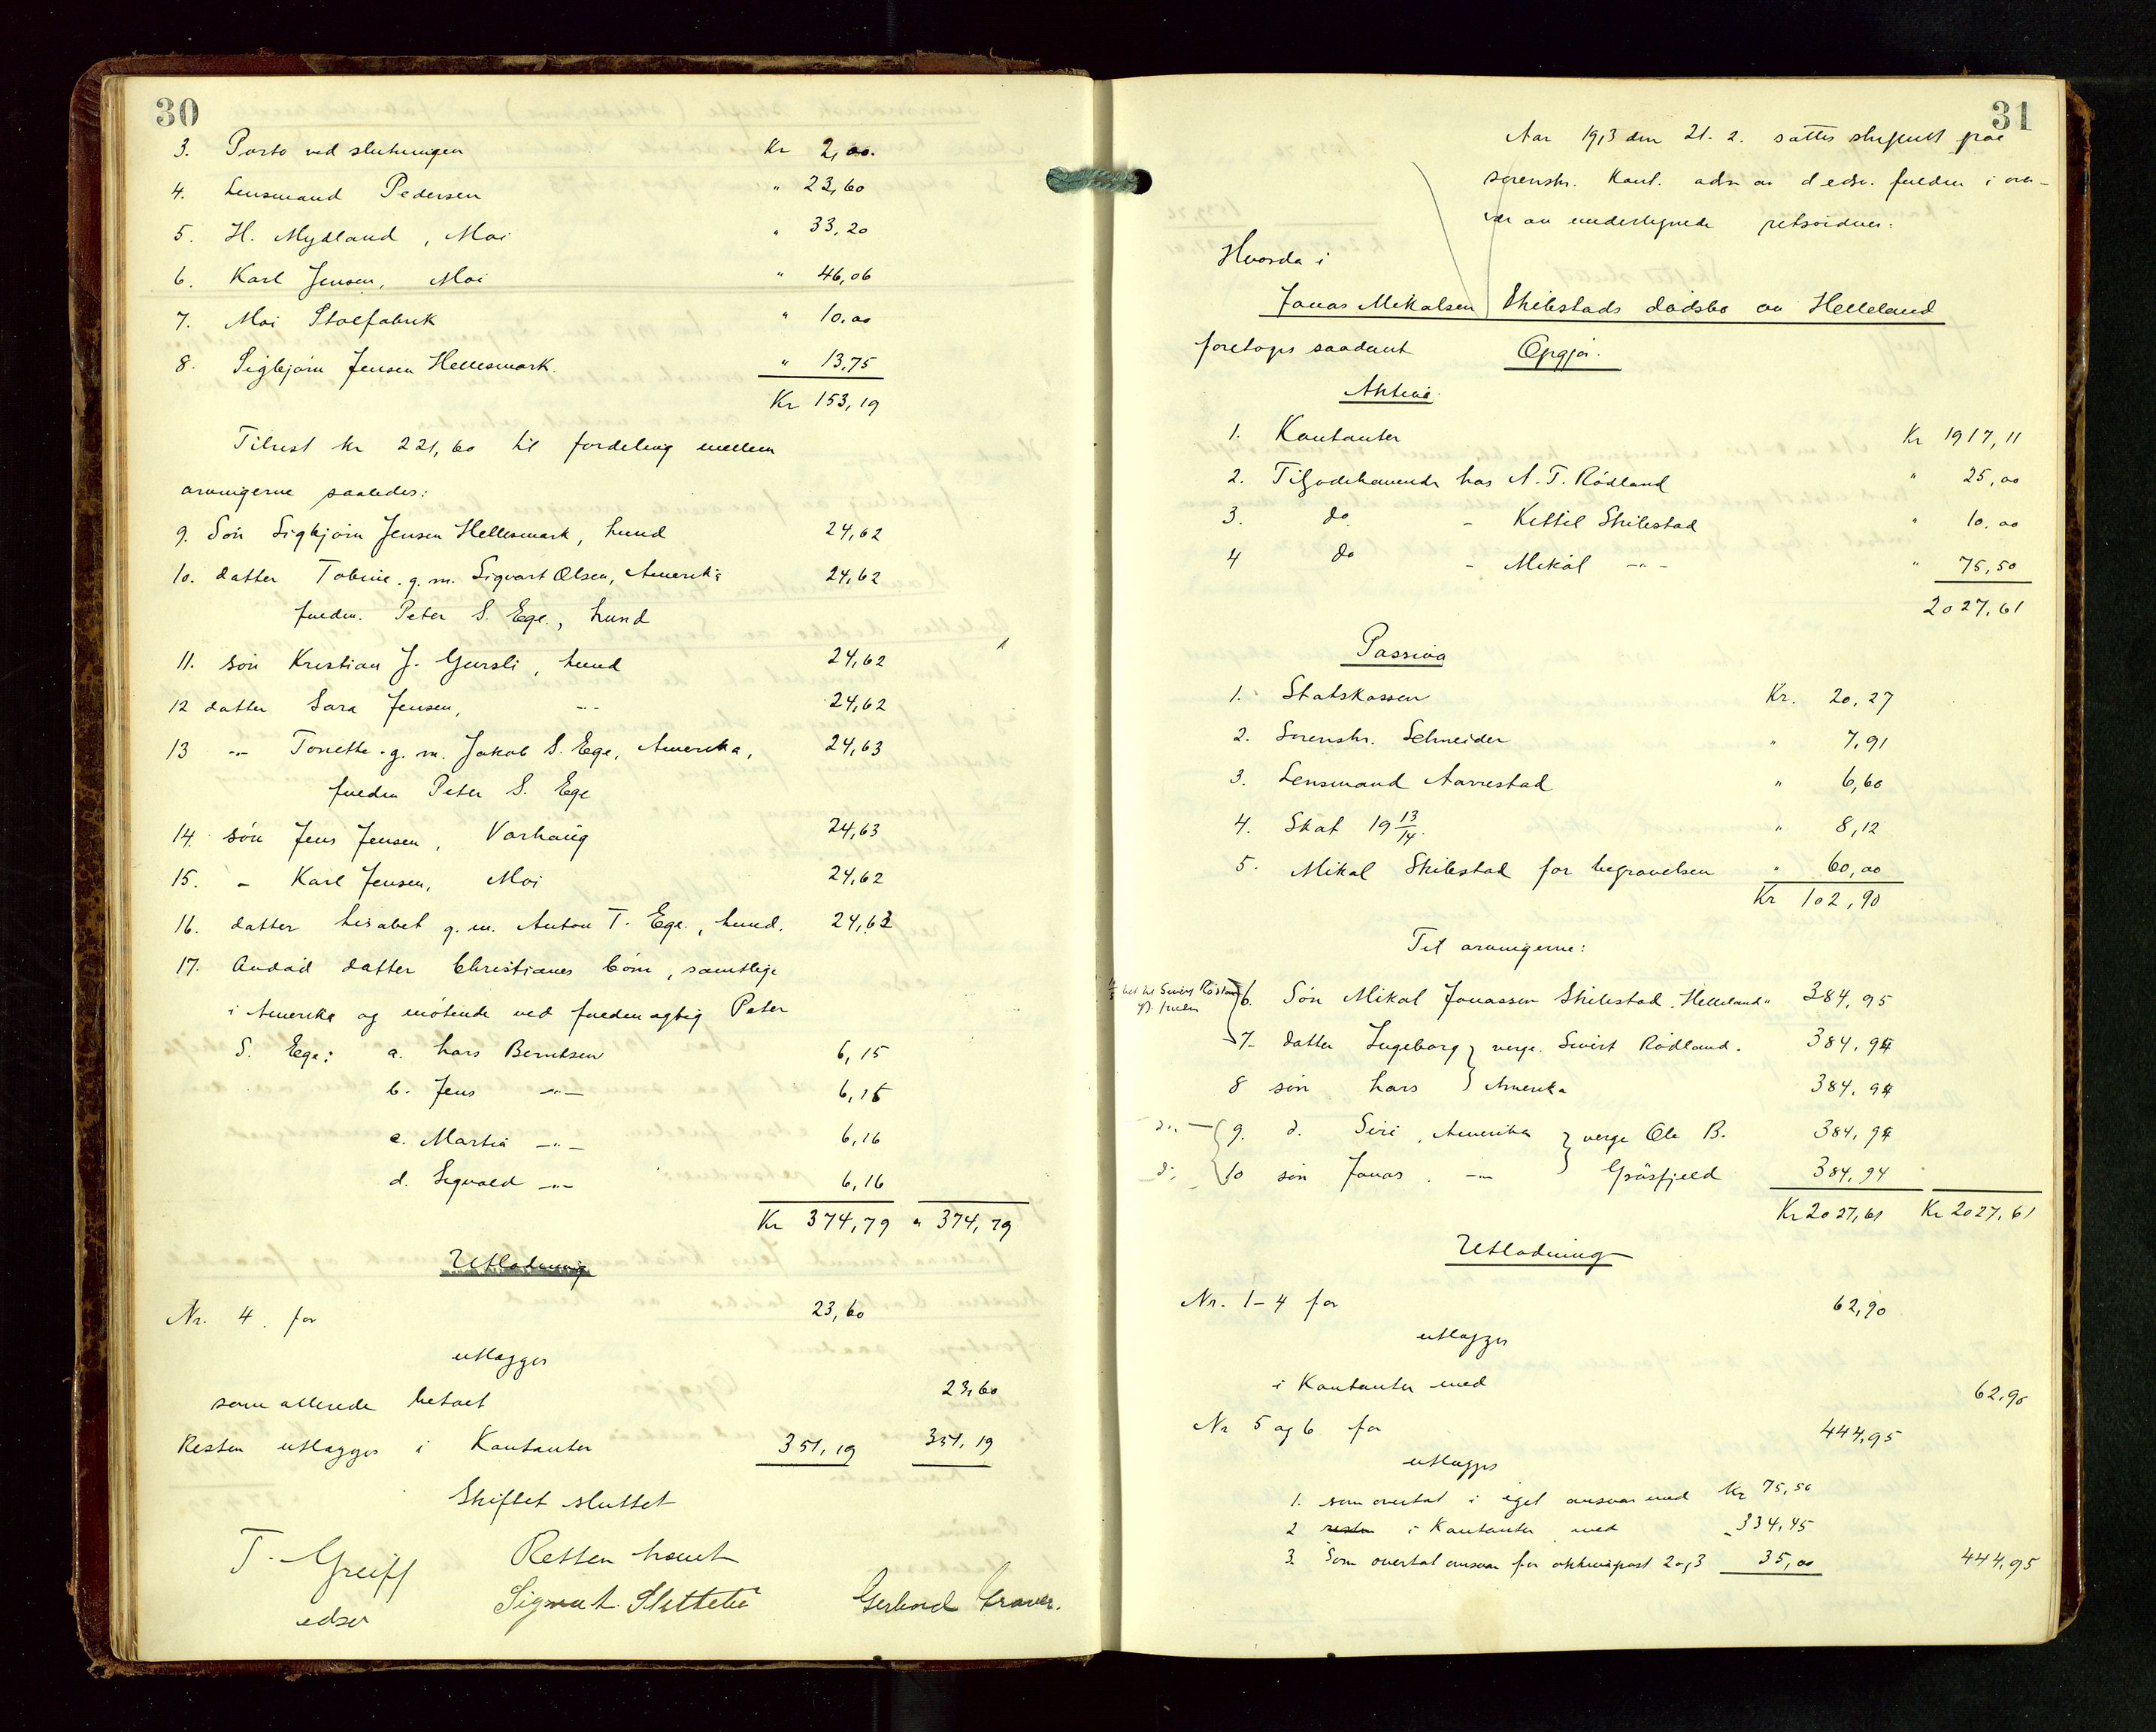 30
3. Porto ved slutningen Kr 2,00.
4. Lensmand Pedersen " 23,60
5. H. Mydland, Moi " 33,20
6. Karl Jensen, Moi " 46,06
7. Moi Stolfabrik " 10.00
8. Sigbjørn Jensen Hellesmark. " 13,75
Kr 153,19
Tilrest kr 221,60 til fordeling mellem
arvingerne saaledes:
9. Søn Sigbjørn Jensen Hellesmark, Lund 24,62
10. datter Tobine g. m. Sigvart Olsen, Amerika 24,62
fuldm. Peter S. Ege, Lund
11. søn Kristian J. Gursli, Lund 24,62
12 datter Sara Jensen, -"- 24,62
13 -"- Tonette g. m. Jakob S. Ege, Amerika, 24,63
fuldm Peter S. Ege
14. søn Jens Jensen, Varhaug 24,63
15. - Karl Jensen, Moi 24,62
16. datter Lisabet g. m. Anton T. Ege, Lund. 24,62
17. Avdød datter Christianes børn, samtlige
i Amerika og møtende ved fuldmægtig Peter
S. Ege: a. Lars Berntsen 6,15
b. Jens -"- 6,15
c. Martin -"- 6,16
d. Sigvald -"- 6,16
Kr 374,79 " 374,79
Utlodning
Nr. 4 for 23,60
utlægges
som allerede betalt 23,60
Resten utlægges i Kontanter 351,19 351,19
Skiftet sluttet
Retten hævet
T. Greiff
edsv
Sigmat. Slettebø Gerhard Graver.
31
Aar 1913 den 21. 2. sattes skifteret paa
sorenskr. kont. adm av d edsv. fuldm i over-
vær av undertegnede retsvidner.
Hvorda i
Jonas Mikalsen Skibstads dødsbo av Helleland
foretoges saadant Opgjør.
Aktiva
1. Kontanter Kr 1917,11
2. Tilgodehavende hos A. T. Rødland " 25,00
3. do - Kettil Skibstad " 10.00
4 do - Mikal -"- " 75,50
2027,61
Passiva
1. Statskassen Kr. 20,27
2. Sorenskr. Schneider " 7,91
3. Lensmand Aarrestad " 6,60
4. Skat 19 13/14. " 8,12
5. Mikal Skibstad for begravelsen " 60,00
Kr 102,90
Til arvingerne:
6. Søn Mikal Jonassen Skibstad, Helleland" 384,95
7. datter Ingeborg } verge. Sivert Rødland. 384,94
8 søn Lars } Amerika 384,94
do - 9. d. Siri, Amerika } verge Ole B. 384,94
do 10 søn Jonas. -"- } Gråsfjeld 384,94
Kr 2027,61 Kr 2027,61
Utlodning
Nr. 1-4 for 62,90
utlægges
i Kontanter med 62,90
Nr 5 og 6 for 444,95
utlægges
1. som overtat i eget ansvar med Kr 75,50
2 resten i Kontanter med - 334,45
3. Som overtat ansvar for aktivapost 2 og 3 35,00 444,95